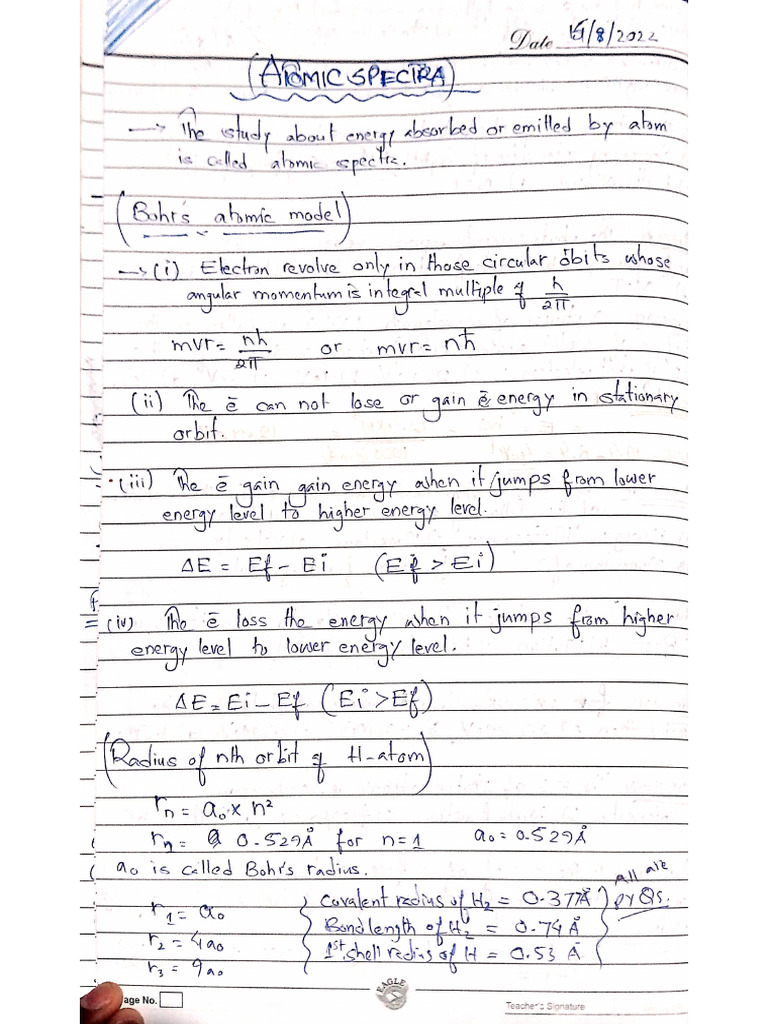 Date 15/8/2022
(ATOMIC SPECTRA)
→ The study about energy absorbed or emitted by atom
is called atomic spectra.
(Bohr's atomic model)
→ (i) Electron revolve only in those circular orbits whose
angular momentum is integral multiple of h/2π.
mvr = nh/2π or mvr = nħ
(ii) The ē can not lose or gain ē energy in stationary
orbit.
(iii) The ē gain gain energy when it jumps from lower
energy level to higher energy level.
ΔE = Ef - Ei (Ef > Ei)
(iv) The ē loss the energy when it jumps from higher
energy level to lower energy level.
ΔE = Ei - Ef (Ei > Ef)
(Radius of nth orbit of H-atom)
rn = a₀ x n²
rn = 0.529Å for n=1 a₀ = 0.529Å
a₀ is called Bohr's radius.
r₁ = a₀
r₂ = 4a₀
r₃ = 9a₀
Covalent radius of H₂ = 0.37Å
Bond length of H₂ = 0.74 Å
1st shell radius of H = 0.53 Å
All are
PYQs.
age No.
EAGLE
Teacher's Signature